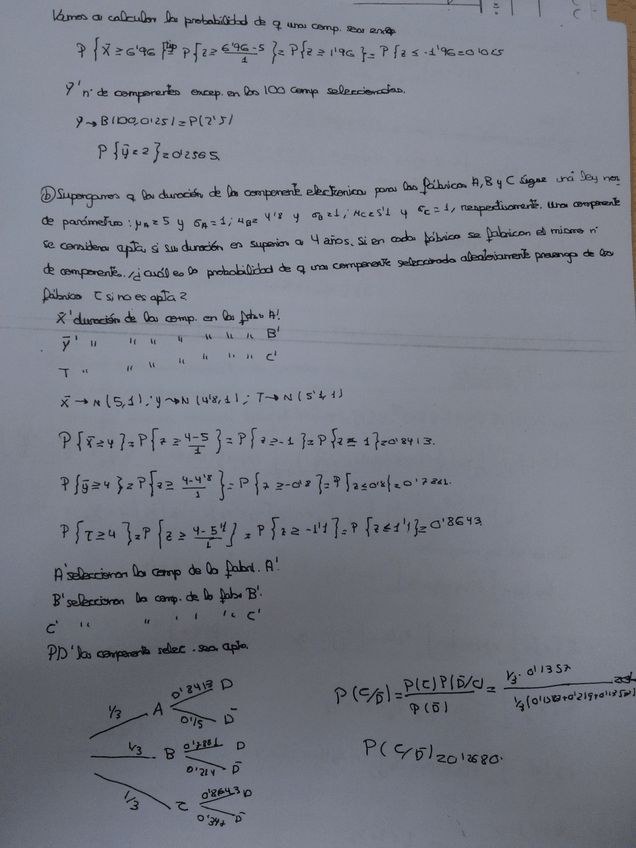 Vamos a calcular la probabilidad de q una comp. sea excep
P{X̄ ≥ 6'96} = P{z ≥ 6'96-5/1} = P{z ≥ 1'96} = P{z ≤ -1'96} = 0'025
Y' nº de componentes excep. en las 100 comp seleccionadas.
Y → B(100,0'25) = P(2'5)
P{ȳ = 2} = 0'2565.
b) Supongamos q la duración de la componente electronica para las fábricas A, B y C sigue una ley nor
de parámetros: μA = 5 y σA = 1; μB = 4'8 y σB = 1; μC = 5'1 y σC = 1, respectivamente. Una componente
se considera apta si su duración en superior a 4 años. Si en cada fábrica se fabrican el mismo nº
de componente. ¿cuál es la probabilidad de q una componente seleccionada aleatoriamente provenga de la
fábrica C si no es apta?
X̄' duración de las comp. en la fabr. A'.
ȳ' " " " " " " " B'
T " " " " " " " C'
X̄ → N(5,1); y → N(4'8,1); T → N(5'1,1)
P{X̄ ≥ 4} = P{z ≥ 4-5/1} = P{z ≥ -1} = P{z ≤ 1} = 0'8413.
P{ȳ ≥ 4} = P{z ≥ 4-4'8/1} = P{z ≥ -0'8} = P{z ≤ 0'8} = 0'7881.
P{T ≥ 4} = P{z ≥ 4-5'1/1} = P{z ≥ -1'1} = P{z ≤ 1'1} = 0'8643
A' seleccionan la comp de la fabri. A'.
B' seleccionan la comp. de la fabr B'.
C' " " " " " C'
PD' la componente selec. sea apta.
1/3 A 0'8413 D
0'15 D̄
1/3 B 0'7881 D
0'214 D̄
1/3 C 0'8643 D
0'342 D̄
P(C/D̄) = P(C) P(D̄/C) / P(D̄) = 1/3 · 0'1357 / 1/3
P(C/D̄) = 0'2680.